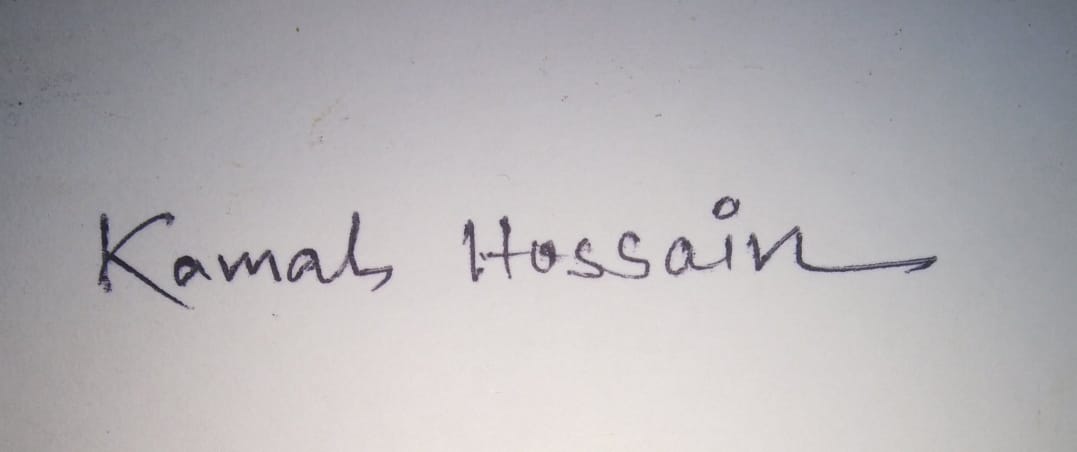 Kamal Hossain